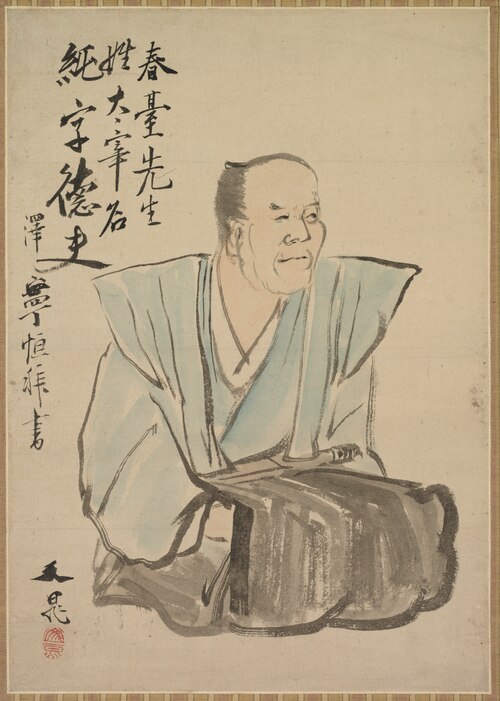 春臺先生
姓太宰名
純字德夫
澤寧恒書
文晁